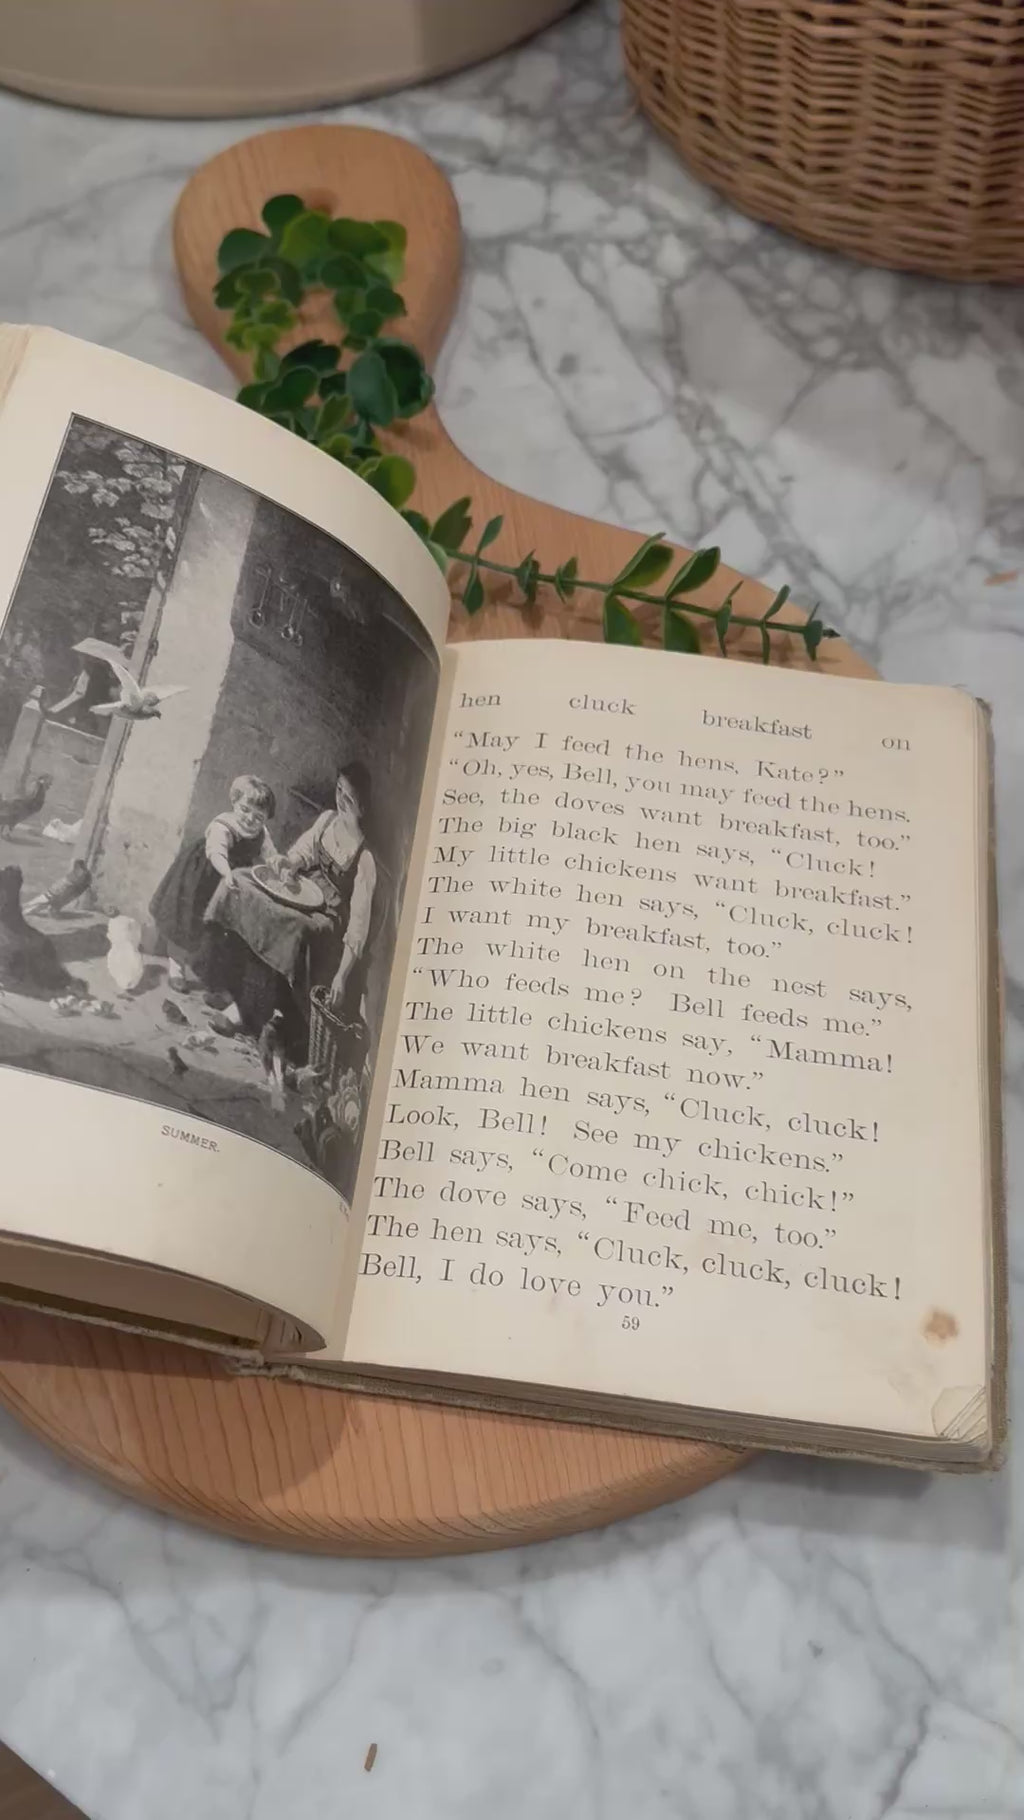 SUMMER.
hen cluck breakfast on
“May I feed the hens, Kate?”
“Oh, yes, Bell, you may feed the hens.
See, the doves want breakfast, too.”
The big black hen says, “Cluck!
My little chickens want breakfast.”
The white hen says, “Cluck, cluck!
I want my breakfast, too.”
The white hen on the nest says,
“Who feeds me? Bell feeds me.”
The little chickens say, “Mamma!
We want breakfast now.”
Mamma hen says, “Cluck, cluck!
Look, Bell! See my chickens.”
Bell says, “Come chick, chick!”
The dove says, “Feed me, too.”
The hen says, “Cluck, cluck, cluck!
Bell, I do love you.”
59